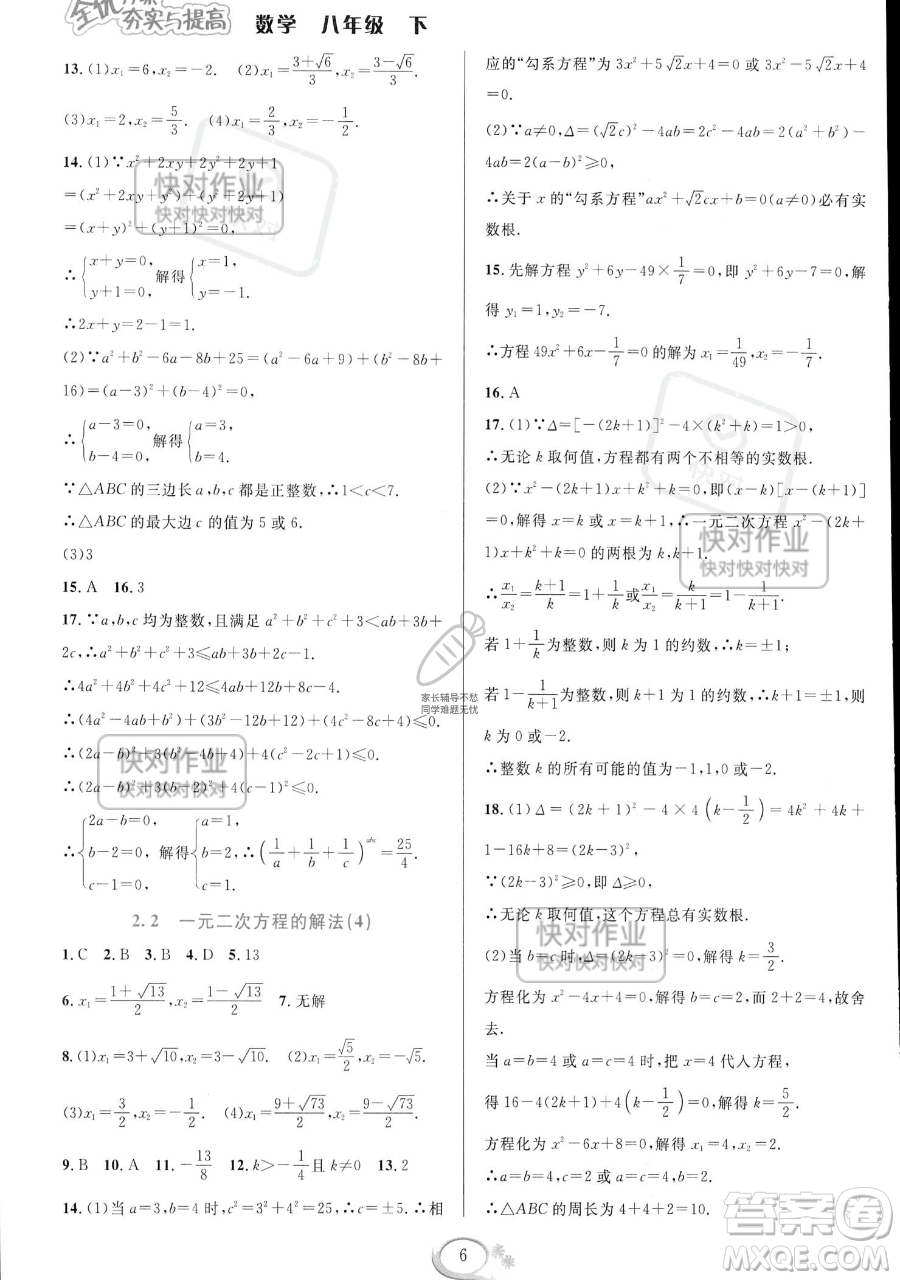 全优方案
夯实与提高 数学 八年级 下
13. (1)x₁=6,x₂=-2. (2)x₁=(3+√6)/3,x₂=(3-√6)/3.
(3)x₁=2,x₂=5/3. (4)x₁=2/3,x₂=-1/2.
14. (1)∵x²+2xy+2y²+2y+1
=(x²+2xy+y²)+(y²+2y+1)
=(x+y)²+(y+1)²=0,
∴{x+y=0, y+1=0, 解得{x=1, y=-1.
∴2x+y=2-1=1.
(2)∵a²+b²-6a-8b+25=(a²-6a+9)+(b²-8b+
16)=(a-3)²+(b-4)²=0,
∴{a-3=0, b-4=0, 解得{a=3, b=4.
∵△ABC的三边长a,b,c都是正整数,∴1<c<7.
∴△ABC的最大边c的值为5或6.
(3)3
15. A 16. 3
17. ∵a,b,c均为整数,且满足a²+b²+c²+3<ab+3b+
2c,∴a²+b²+c²+3+1≤ab+3b+2c.
∴4a²+4b²+4c²+12+4≤4ab+12b+8c.
∴(4a²-4ab+b²)+(3b²-12b+12)+(4c²-8c+4)≤0.
∴(2a-b)²+3(b²-4b+4)+4(c²-2c+1)≤0.
∴(2a-b)²+3(b-2)²+4(c-1)²≤0.
∴{2a-b=0, b-2=0, c-1=0, 解得{a=1, b=2, c=1. ∴(1/a+1/b+1/c)^abc=25/4.
2.2 一元二次方程的解法(4)
1. C 2. B 3. B 4. D 5. 13
6. x₁=(1+√13)/2,x₂=(1-√13)/2 7. 无解
8. (1)x₁=3+√10,x₂=3-√10. (2)x₁=√5/2,x₂=-√5.
(3)x₁=3/2,x₂=-1/2. (4)x₁=(9+√73)/2,x₂=(9-√73)/2.
9. B 10. A 11. -13/8 12. k>-1/4且k≠0 13. 2
14. (1)当a=3,b=4时,c=√(3²+4²)=√25=±5. ∴相
应的“勾系方程”为3x²+5√2x+4=0或3x²-5√2x+4
=0.
(2)∵a≠0,Δ=(√2c)²-4ab=2c²-4ab=2(a²+b²)-
4ab=2(a-b)²≥0,
∴关于x的“勾系方程”ax²+√2cx+b=0(a≠0)必有实
数根.
15. 先解方程y²+6y-49×1/7=0,即y²+6y-7=0,解
得y₁=1,y₂=-7.
∴方程49x²+6x-1/7=0的解为x₁=1/49,x₂=-1/7.
16. A
17. (1)∵Δ=[-(2k+1)]²-4×(k²+k)=1>0,
∴无论k取何值,方程都有两个不相等的实数根.
(2)∵x²-(2k+1)x+k²+k=0,即(x-k)[x-(k+1)]
=0,解得x=k或x=k+1,∴一元二次方程x²-(2k+
1)x+k²+k=0的两根为k,k+1.
∴x₁/x₂=(k+1)/k=1+1/k或x₁/x₂=k/(k+1)=1-1/(k+1).
若1+1/k为整数,则k为1的约数,∴k=±1;
若1-1/(k+1)为整数,则k+1为1的约数,∴k+1=±1,∴
k为0或-2.
∴整数k的所有可能的值为-1,1,0或-2.
18. (1)Δ=(2k+1)²-4×4(k-1/2)=4k²+4k+
1-16k+8=(2k-3)²,
∵(2k-3)²≥0,即Δ≥0,
∴无论k取何值,这个方程总有实数根.
(2)当b=c时,Δ=(2k-3)²=0,解得k=3/2.
方程化为x²-4x+4=0,解得b=c=2,而2+2=4,故舍
去.
当a=b=4或a=c=4时,把x=4代入方程,
得16-4(2k+1)+4(k-1/2)=0,解得k=5/2.
方程化为x²-6x+8=0,解得x₁=4,x₂=2.
∴a=b=4,c=2或a=c=4,b=2.
∴△ABC的周长为4+4+2=10.
6
快对作业
快对快对快对
快对
快对作业
快对快对快对
家长辅导不愁
同学难题无忧
快对作业
快对快对快对
快对作业
快对快对快对
答案圈
MXQE.COM